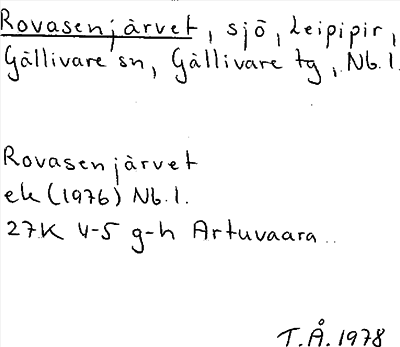 Rovasenjärvet, sjö, Leipipir,
Gällivare sn, Gällivare tg, Nb.l.
Rovasenjärvet
ek (1976) Nb.l.
27K 4-5 g-h Artuvaara
T.Å. 1978